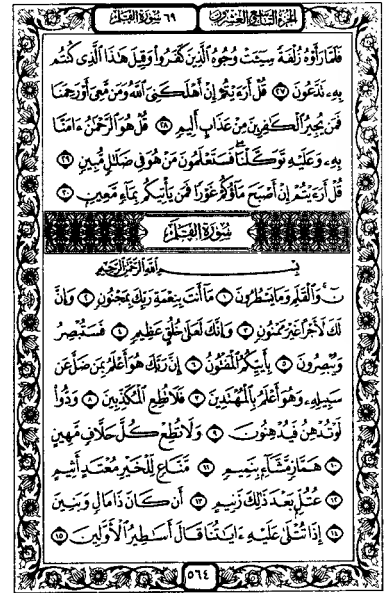 الجزء التاسع والعشرون ٦٩ سورة القلم
فَلَمَّا رَأَوْهُ زُلْفَةً سِيٓـَٔتْ وُجُوهُ ٱلَّذِينَ كَفَرُوا۟ وَقِيلَ هَٰذَا ٱلَّذِى كُنتُم
بِهِۦ تَدَّعُونَ ٢٧ قُلْ أَرَءَيْتُمْ إِنْ أَهْلَكَنِىَ ٱللَّهُ وَمَن مَّعِىَ أَوْ رَحِمَنَا
فَمَن يُجِيرُ ٱلْكَٰفِرِينَ مِنْ عَذَابٍ أَلِيمٍ ٢٨ قُلْ هُوَ ٱلرَّحْمَٰنُ ءَامَنَّا
بِهِۦ وَعَلَيْهِ تَوَكَّلْنَا فَسَتَعْلَمُونَ مَنْ هُوَ فِى ضَلَٰلٍ مُّبِينٍ ٢٩
قُلْ أَرَءَيْتُمْ إِنْ أَصْبَحَ مَآؤُكُمْ غَوْرًا فَمَن يَأْتِيكُم بِمَآءٍ مَّعِينٍۭ ٣٠
سورة القلم
بِسْمِ ٱللَّهِ ٱلرَّحْمَٰنِ ٱلرَّحِيمِ
نٓ وَٱلْقَلَمِ وَمَا يَسْطُرُونَ ١ مَآ أَنتَ بِنِعْمَةِ رَبِّكَ بِمَجْنُونٍ ٢ وَإِنَّ
لَكَ لَأَجْرًا غَيْرَ مَمْنُونٍ ٣ وَإِنَّكَ لَعَلَىٰ خُلُقٍ عَظِيمٍ ٤ فَسَتُبْصِرُ
وَيُبْصِرُونَ ٥ بِأَييِّكُمُ ٱلْمَفْتُونُ ٦ إِنَّ رَبَّكَ هُوَ أَعْلَمُ بِمَن ضَلَّ عَن
سَبِيلِهِۦ وَهُوَ أَعْلَمُ بِٱلْمُهْتَدِينَ ٧ فَلَا تُطِعِ ٱلْمُكَذِّبِينَ ٨ وَدُّوا۟
لَوْ تُدْهِنُ فَيُدْهِنُونَ ٩ وَلَا تُطِعْ كُلَّ حَلَّافٍ مَّهِينٍ
١٠ هَمَّازٍ مَّشَّآءٍۭ بِنَمِيمٍ ١١ مَّنَّاعٍ لِّلْخَيْرِ مُعْتَدٍ أَثِيمٍ
١٢ عُتُلٍّۭ بَعْدَ ذَٰلِكَ زَنِيمٍ ١٣ أَن كَانَ ذَا مَالٍ وَبَنِينَ
١٤ إِذَا تُتْلَىٰ عَلَيْهِ ءَايَٰتُنَا قَالَ أَسَٰطِيرُ ٱلْأَوَّلِينَ ١٥
٥٦٤